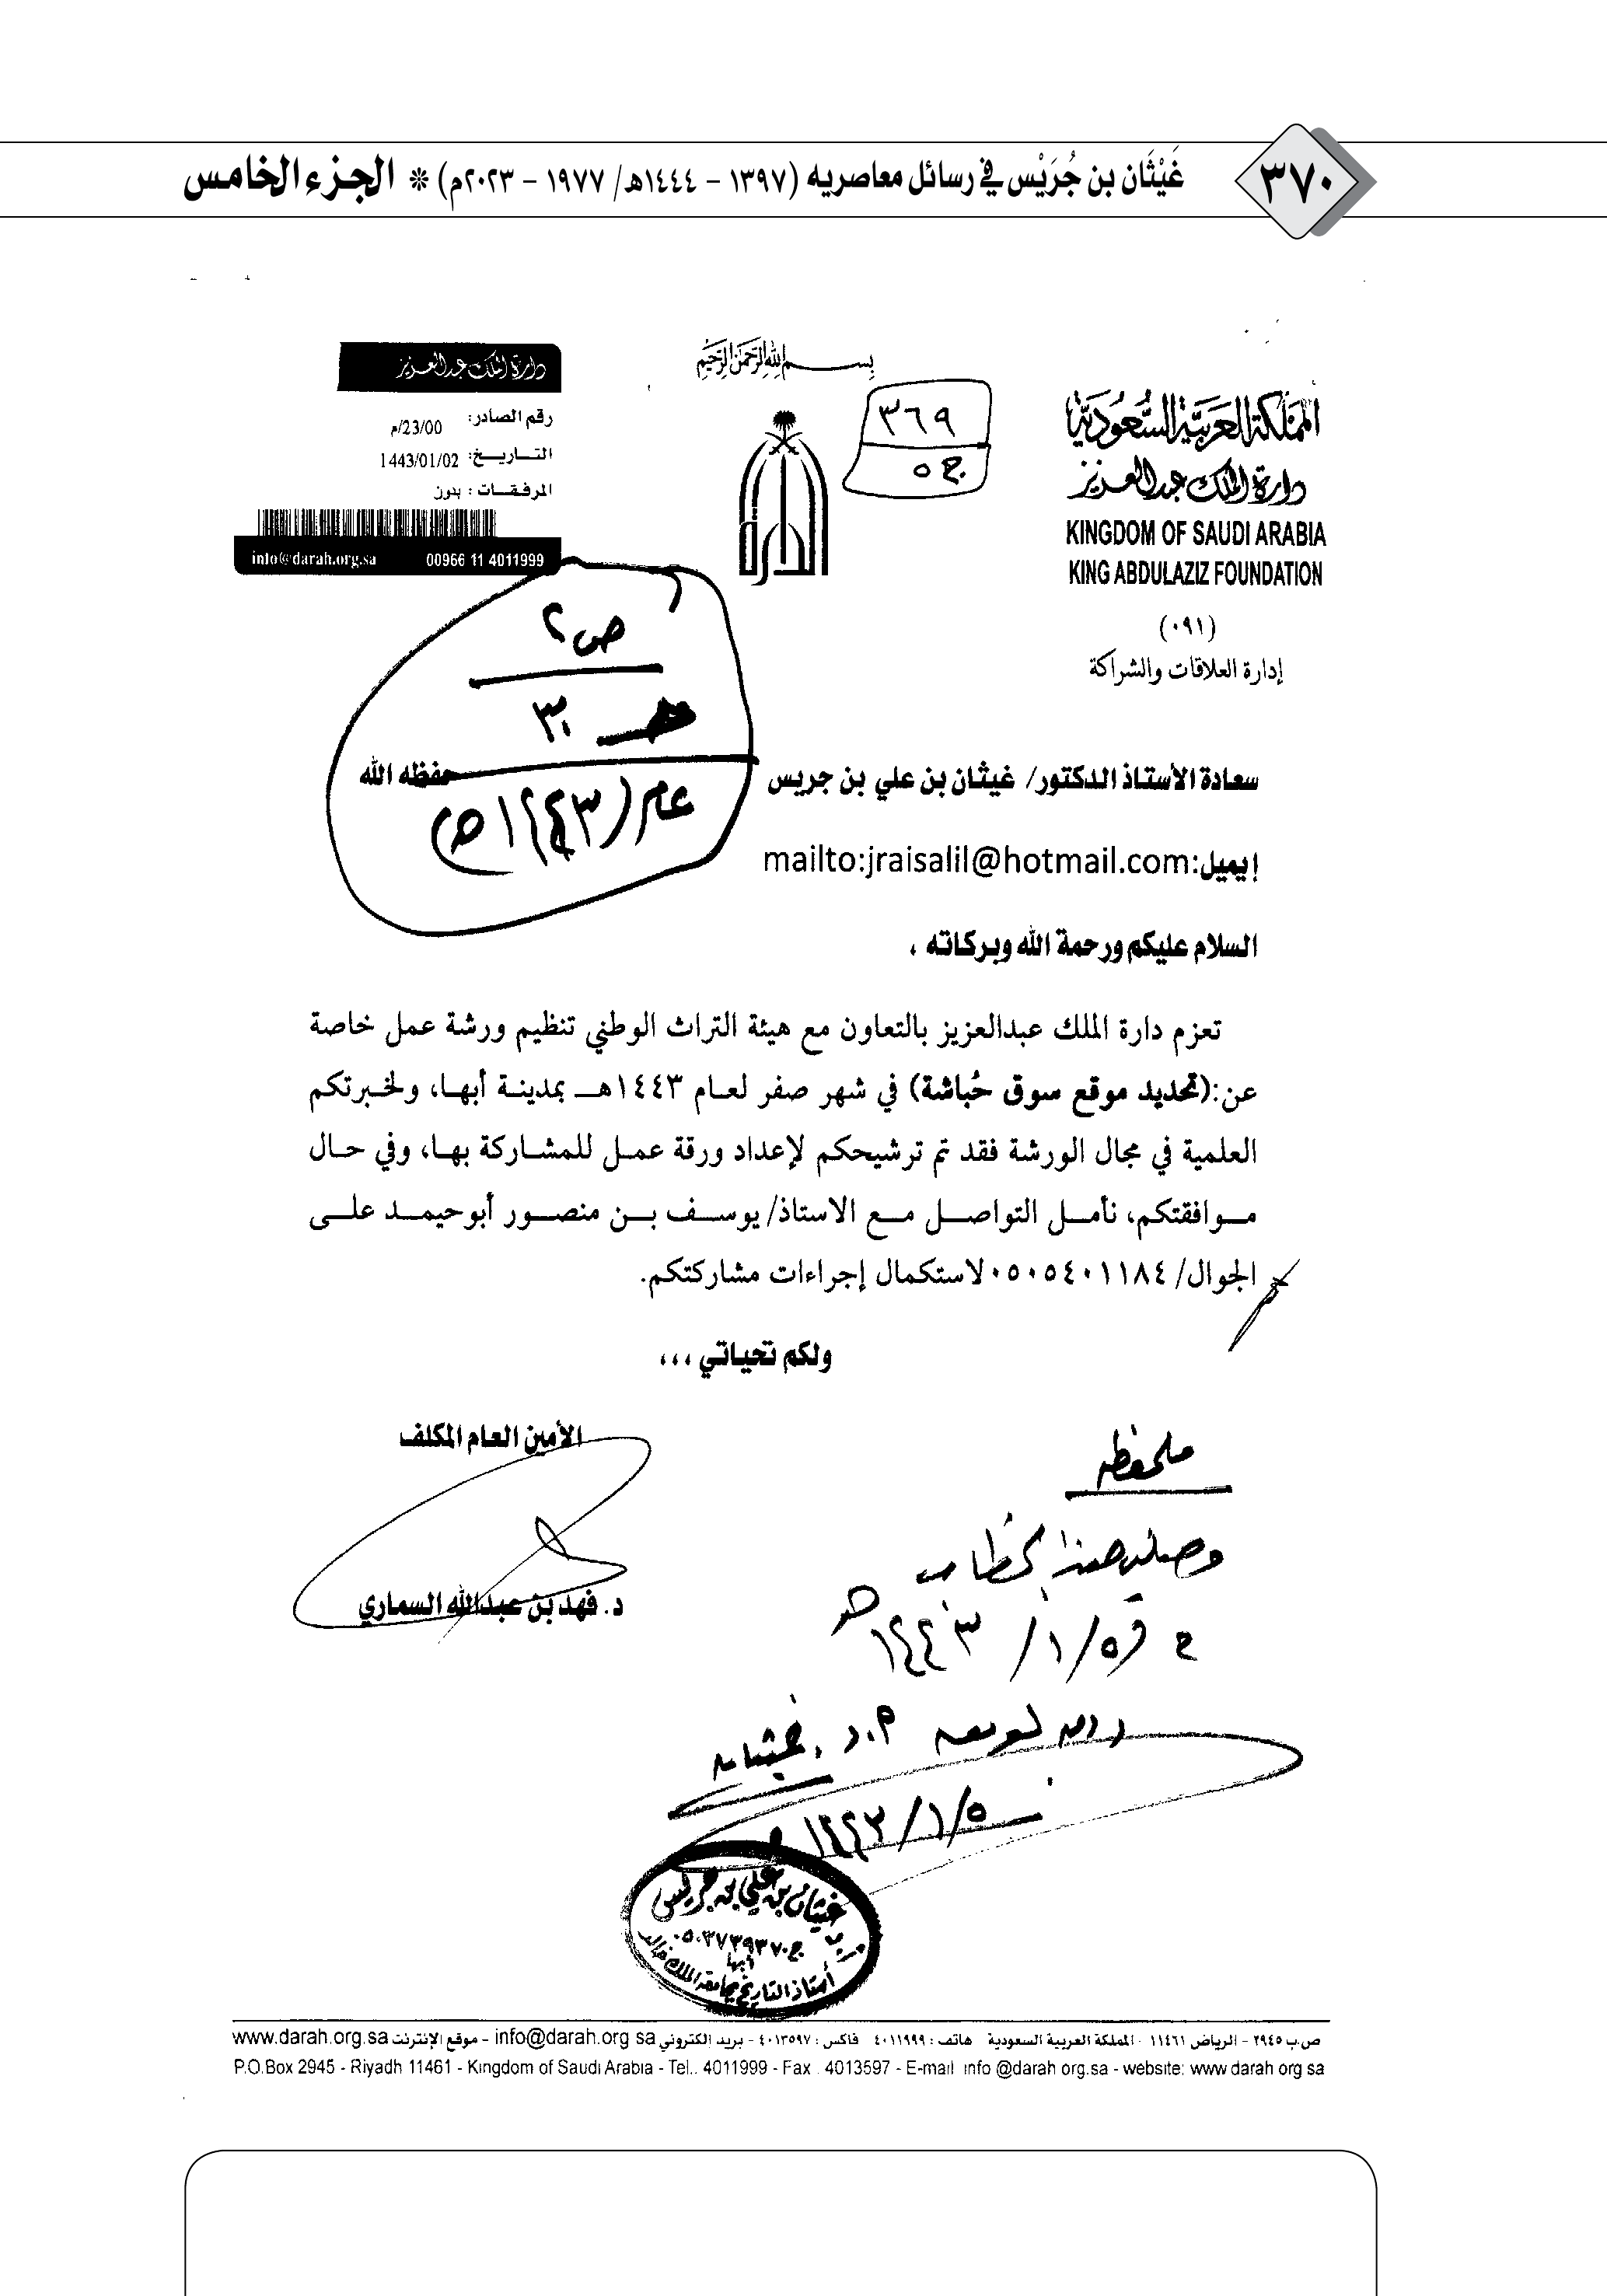 ٣٧٠
غَيْثَان بن جُرَيْس في رسائل معاصريه (١٣٩٧ - ١٤٤٤هـ/ ١٩٧٧ - ٢٠٢٣م) * الجزء الخامس
المملكة العربية السعودية
دارة الملك عبدالعزيز
KINGDOM OF SAUDI ARABIA
KING ABDULAZIZ FOUNDATION
(٠٩١)
إدارة العلاقات والشراكة
بسم الله الرحمن الرحيم
٣٦٩
ج ٥
الدارة
دارة الملك عبدالعزيز
رقم الصادر: 23/00/م
التـــاريـــخ: 1443/01/02
المرفقـــات : بدون
info@darah.org.sa 00966 11 4011999
ص ٢
٣٠
عام (١٤٤٣هـ)
سعادة الأستاذ الدكتور/ غيثان بن علي بن جريس حفظه الله
إيميل:mailto:jraisalil@hotmail.com
السلام عليكم ورحمة الله وبركاته ،
تعزم دارة الملك عبدالعزيز بالتعاون مع هيئة التراث الوطني تنظيم ورشة عمل خاصة
عن:(تحديد موقع سوق حُباشة) في شهر صفر لعام ١٤٤٣هـ بمدينة أبها، ولخبرتكم
العلمية في مجال الورشة فقد تم ترشيحكم لإعداد ورقة عمل للمشاركة بها، وفي حال
موافقتكم، نأمل التواصل مع الاستاذ/ يوسف بن منصور أبوحيمد على
الجوال/ ٠٥٠٥٤٠١١٨٤ لاستكمال إجراءات مشاركتكم.
ولكم تحياتي ،،،
الأمين العام المكلف
د. فهد بن عبدالله السماري
ملحوظة
وصلني هذا الخطاب
في ١٤٤٣/١/٥هـ
أ.د. غيثان
١٤٤٣/١/٥
غيثان بن علي بن جريس
ج٠٥٠٣٧٣٩٣٧٠
أبها
أستاذ التاريخ بجامعة الملك خالد
ص.ب ٢٩٤٥ - الرياض ١١٤٦١ - المملكة العربية السعودية هاتف : ٤٠١١٩٩٩ فاكس : ٤٠١٣٥٩٧ - بريد إلكتروني info@darah.org sa - موقع الإنترنت www.darah.org.sa
P.O.Box 2945 - Riyadh 11461 - Kingdom of Saudi Arabia - Tel.. 4011999 - Fax . 4013597 - E-mail info @darah org.sa - website: www darah org sa